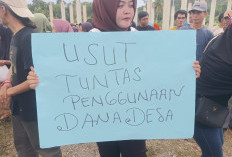 USUT
TUNTAS
PENGGUNAAN
DANA DESA